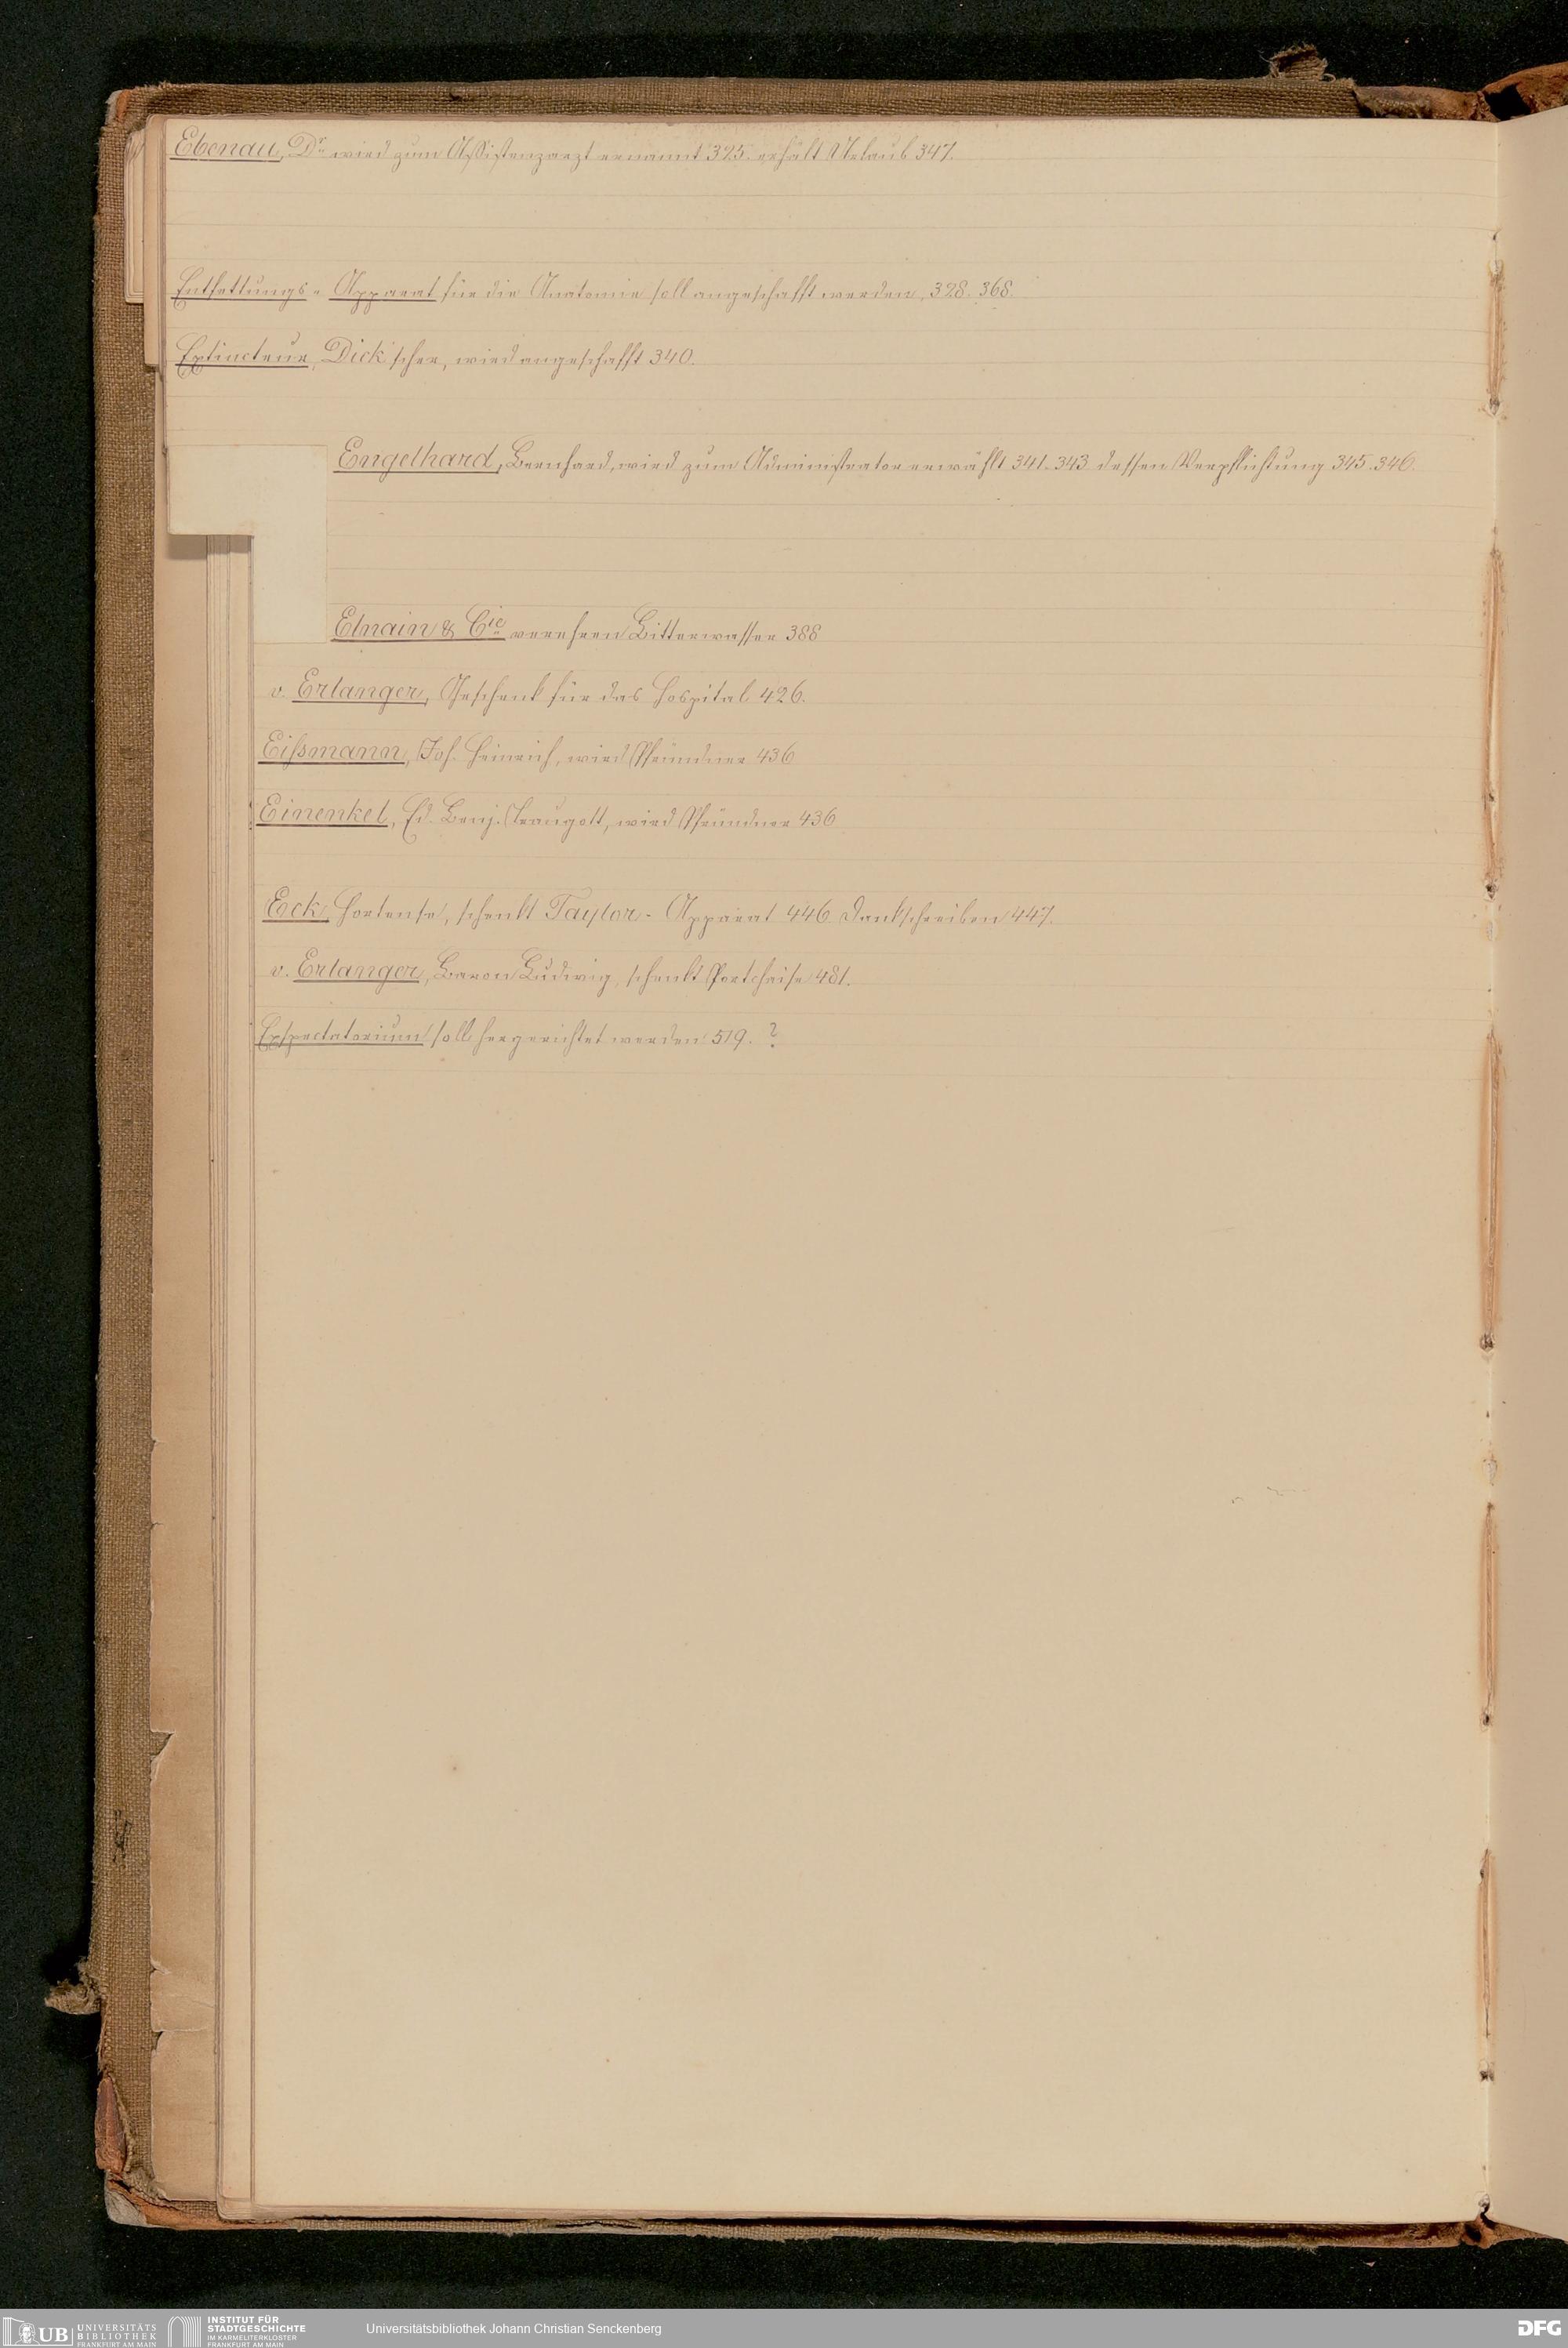 Ebenau, Dr wird zum Assistenzarzt ernannt 325. erhält Urlaub 347.
Entfettungs-Apparat für die Anatomie soll angeschafft werden, 328. 368.
Extincteur, Dick'scher, wird angeschafft 340.
Engelhard, Bernhard, wird zum Administrator erwählt 341. 343. dessen Verpflichtung 345. 346.
Elnain & Cie verehren Bitterwasser 388
v. Erlanger, Geschenk für das Hospital 426.
Eißmann, Joh. Heinrich, wird Pfründner 436
Einenkel, Ed. Benj. Traugott, wird Pfründner 436
Eck, Hortense, schenkt Taylor-Apparat 446 Dankschreiben 447.
v. Erlanger, Baron Ludwig, schenkt Portchaise 481.
Exspectatorium soll hergerichtet werden 519. ?
UB UNIVERSITÄTS BIBLIOTHEK FRANKFURT AM MAIN
INSTITUT FÜR STADTGESCHICHTE IM KARMELITERKLOSTER FRANKFURT AM MAIN
Universitätsbibliothek Johann Christian Senckenberg
DFG